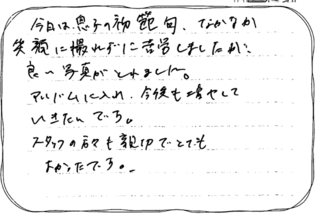 今日は息子の初節句、なかなか
笑顔に撮れずに苦労しましたが、
良い写真がとれました。
アルバムに入れ、今後も増やして
いきたいです。
スタッフの方々も親切でとても
よかったです。